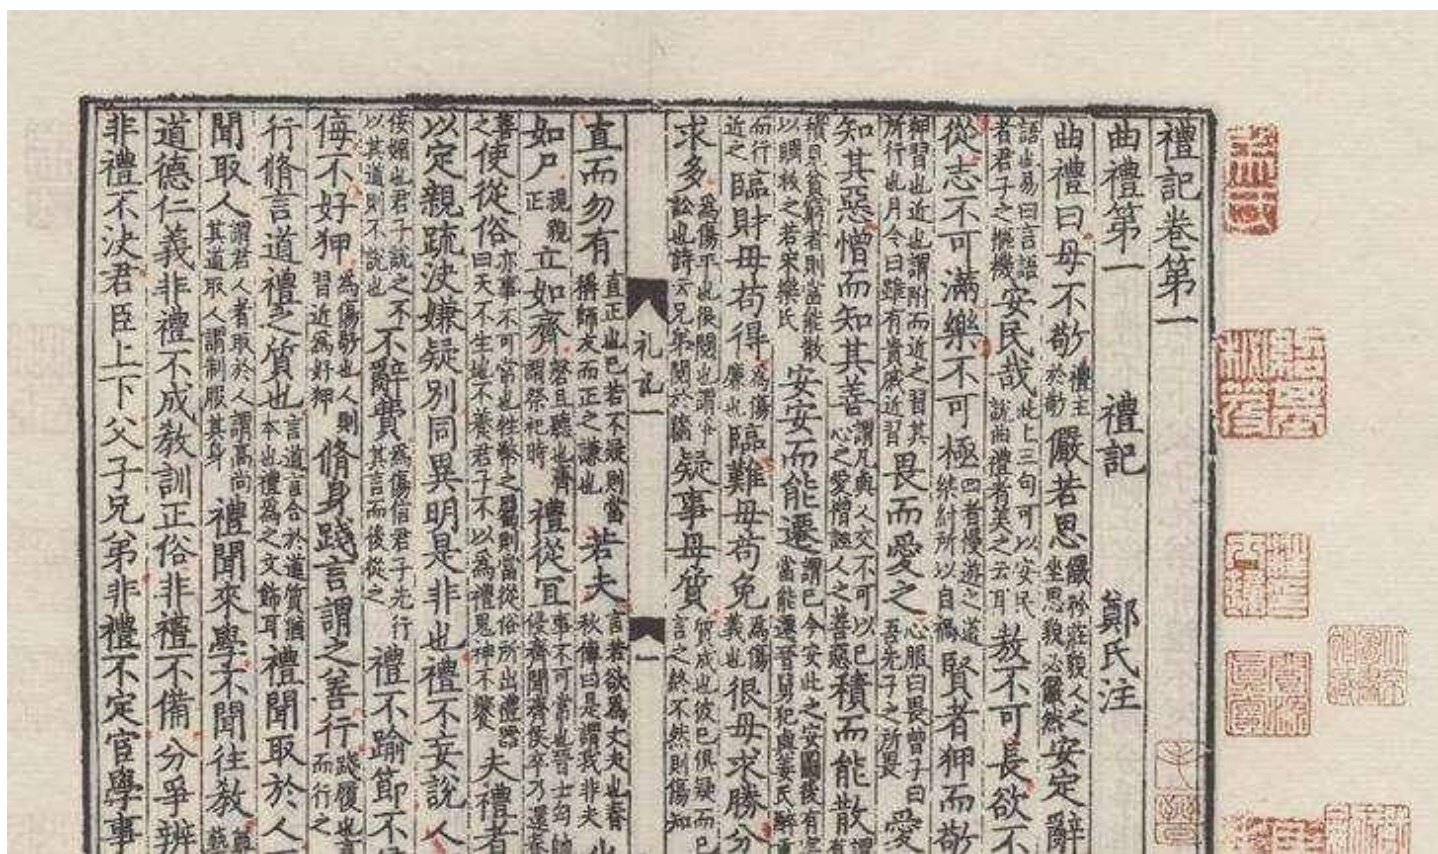 禮記卷第一
曲禮第一 禮記 鄭氏注
曲禮曰毋不敬禮主於敬儼若思儼矜莊貌人之坐思貌必儼然安定辭
語也易曰言語者君子之樞機安民哉此上三句可以安民說曲禮者美之云耳敖不可長欲不
從志不可滿樂不可極四者慢遊之道桀紂所以自禍賢者狎而敬
狎習也近也謂附而近之習其所行也月令曰雖有貴戚近習畏而愛之心服曰畏曾子曰吾先子之所畏愛
知其惡憎而知其善謂凡與人交不可以己心之愛憎誣人之善惡積而能散謂有
積見貧窮者則當能散以賙救之若宋樂氏安安而能遷謂己今安此之安圖後有害當能遷晉舅犯與姜氏醉重
而行近之臨財毋苟得為傷廉也臨難毋苟免為傷義也很毋求勝分
求多為傷平也很鬩也謂爭訟也詩云兄弟鬩於牆疑事毋質質成也彼己俱疑而己言之終不然則傷知
礼記一 一
直而勿有直正也己若不疑則當稱師友而正之謙也若夫言若欲為丈夫也春秋傳曰是謂我非夫坐
如尸視貌正立如齊磬且聽也齊謂祭祀時禮從宜事不可常也晉士匄帥侵齊聞齊侯卒乃還春
善之使從俗亦事不可常也牲幣之屬則當從俗所出禮器曰天不生地不養君子不以為禮鬼神不饗夫禮者
以定親疏決嫌疑別同異明是非也禮不妄說人
佞媚也君子說之不以其道則不說也不辭費為傷信君子先行其言而後從之禮不踰節不
侮不好狎為傷敬也人則習近為好狎脩身踐言謂之善行踐履也言而行之
行脩言道禮之質也言道言合於道質猶本也禮為之文飾耳禮聞取於人
聞取人謂君人者取於人謂高尚其道取人謂制服其身禮聞來學不聞往教
道德仁義非禮不成教訓正俗非禮不備分爭辨
非禮不決君臣上下父子兄弟非禮不定官學事